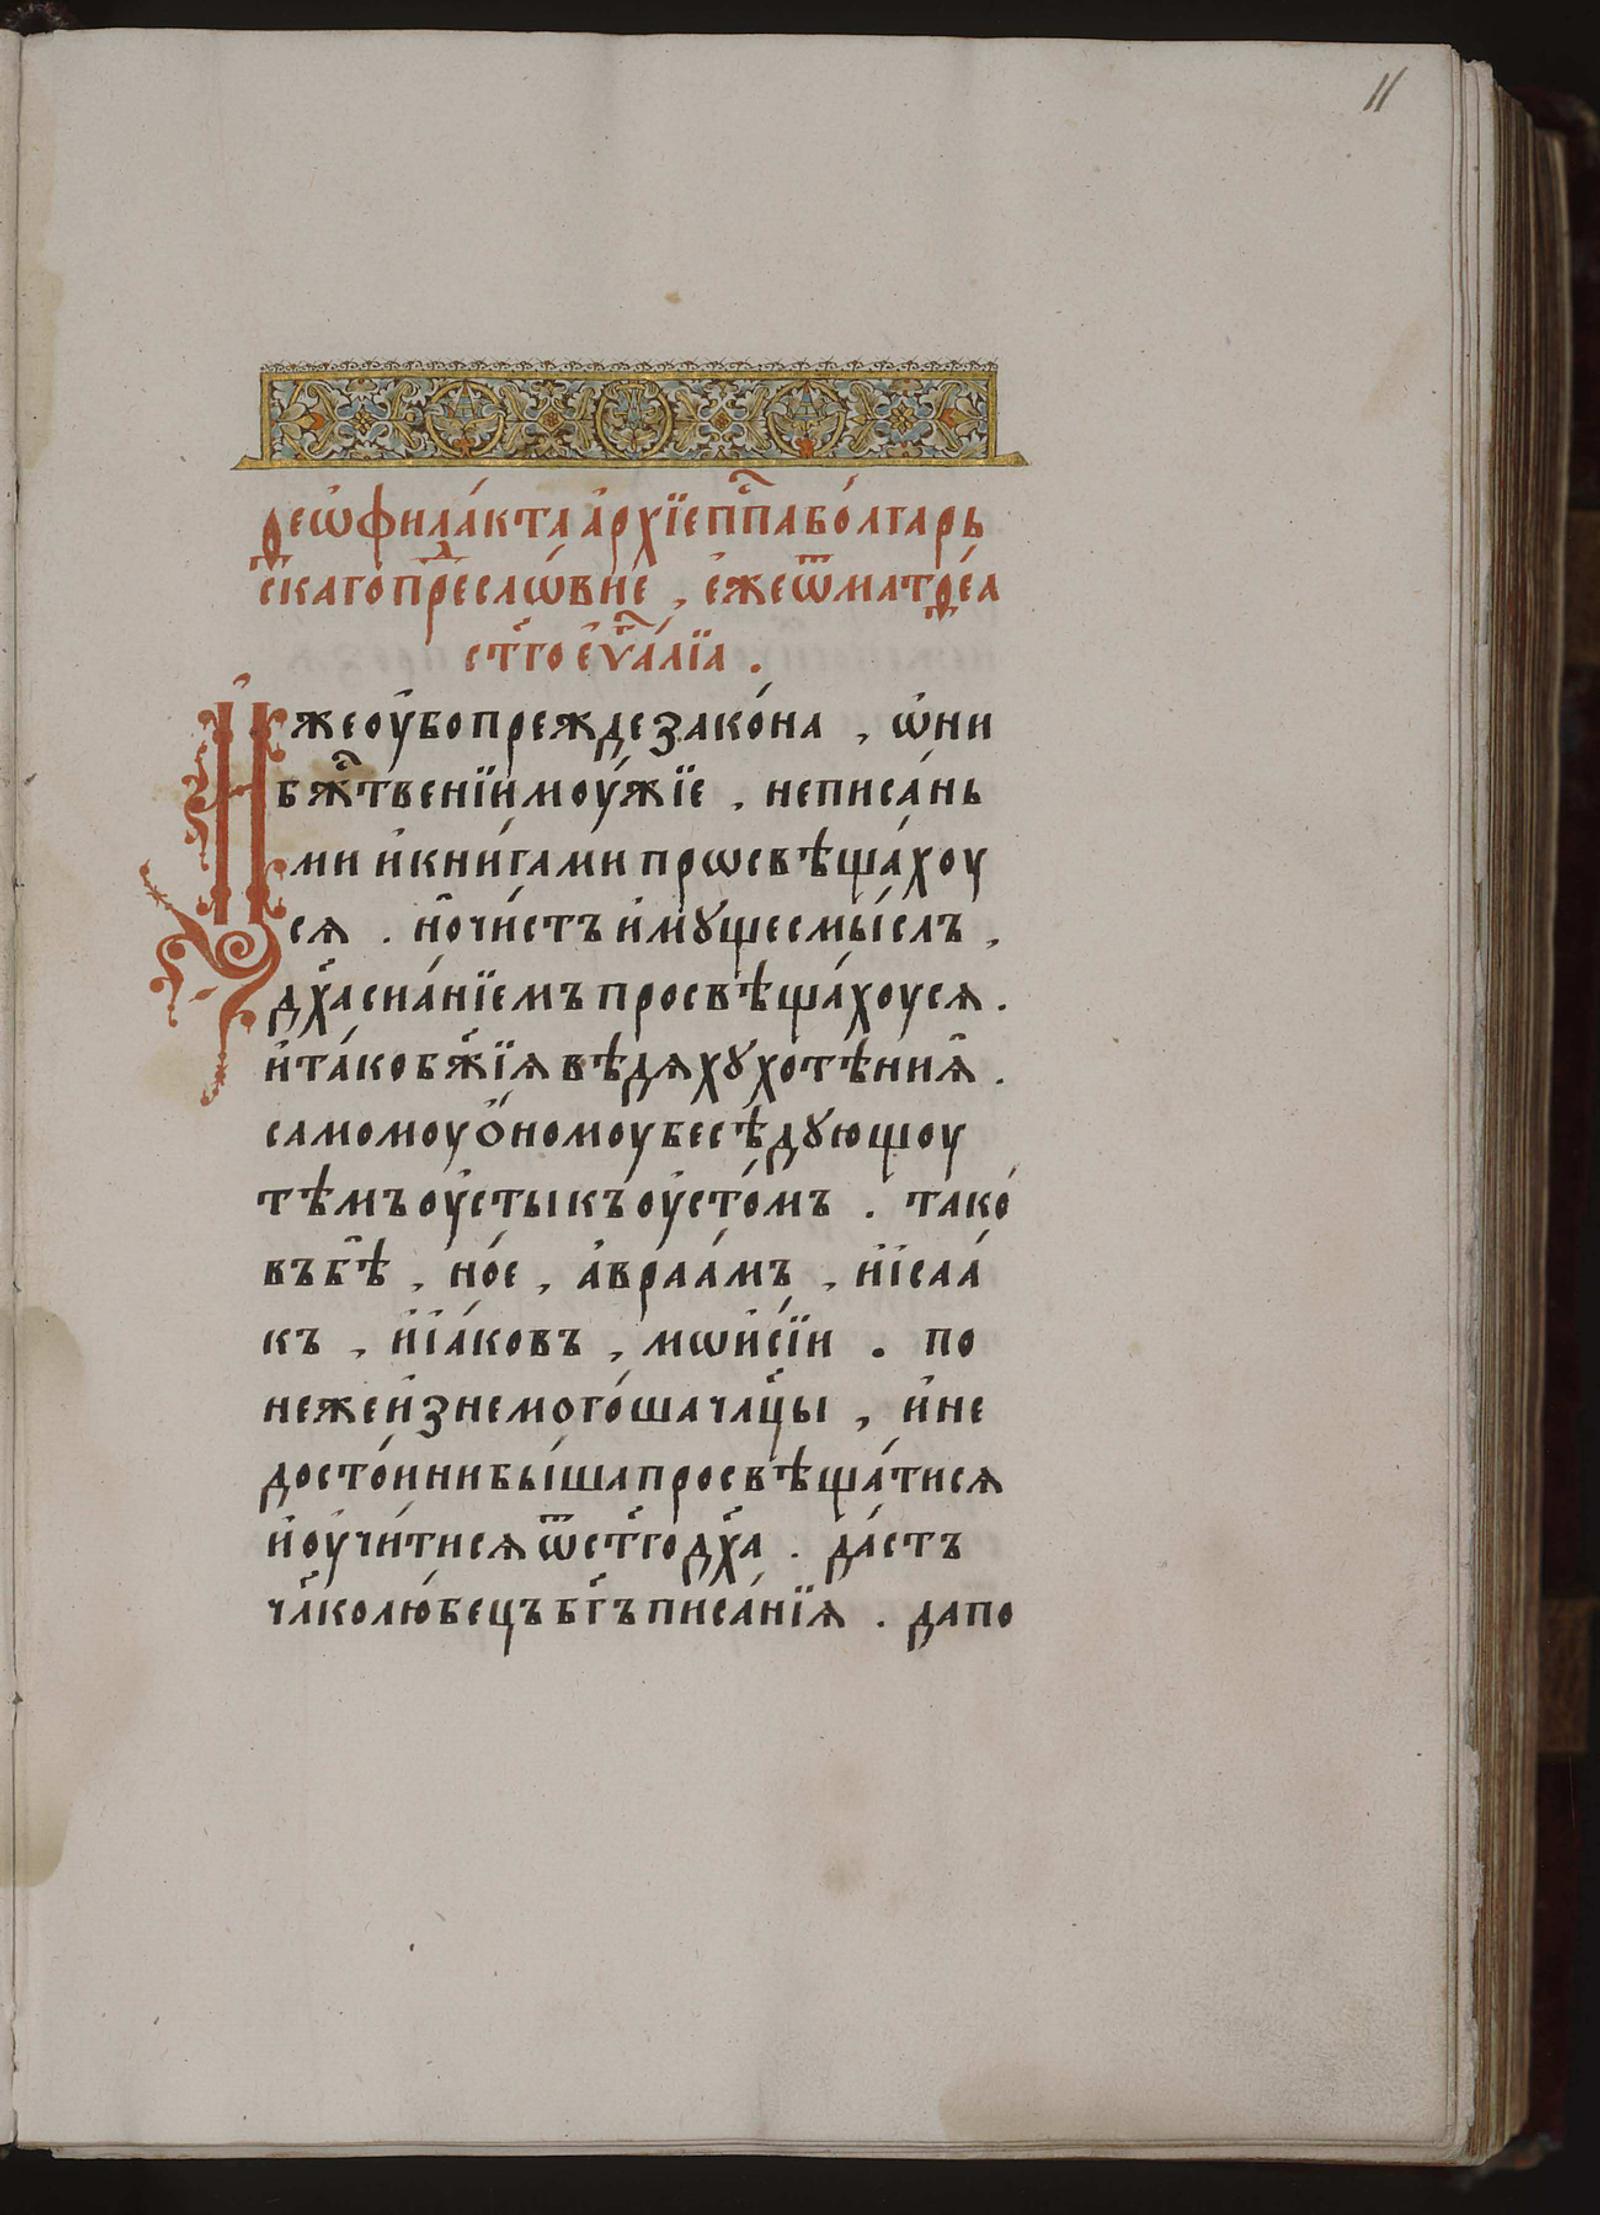 11
Ѳеѡ҆фила́кта а҆рхїепⷭ҇па бо́лгарь
скаго преⷣсло́вие , є҆же ѿ матѳе́а
ст҃го є҆ѵⷢ҇а́лїа .
И҆же оу҆бо прежде зако́на , ѡ҆ни
бжⷭ҇твенїи моу́жїе , не писа́нь
ми и҆ кни́гами прѡсвѣща́хоу
ся . но чи́стъ и҆мꙋще смы́слъ ,
дх҃а сиа́нїемъ просвѣща́хоуся .
и҆ та́ко бж҃їѧ вѣдѧхꙋ хотѣ́ниѧ .
самомоу ѻ҆номоу бесѣ́дꙋющоу
тѣмъ оу҆сты къ оу҆сто́мъ . тако́
въ бѣ̀ , но́е , а҆враа́мъ , и҆ і҆саа́
къ , и҆ і҆а́ковъ , мѡи҆се́їи . по
неже и҆знемого́ша чл҃цы , и҆ не
досто́ини бы́ша просвѣща́тисѧ
и҆ оу҆чи́тисѧ ѿ ст҃го дх҃а . да́стъ
чл҃колю́бецъ бг҃ъ писа́нїѧ . да по